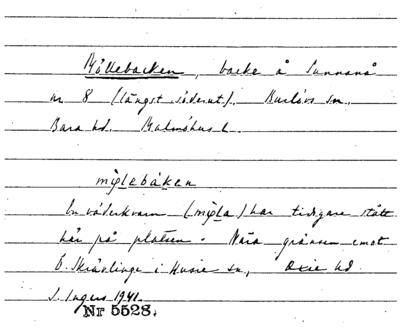 Möllebacken, backe å Sunnanå
nr 8 (längst söderut). Burlövs sn,
Bara hd. Malmöhus l.
En väderkvarn (möl̥la) har tidigare stått
här på platsen. Nära gränsen emot
Ö. Skrävlinge i Husie sn, Oxie hd
S. Ingers 1941.
Nr 5528.